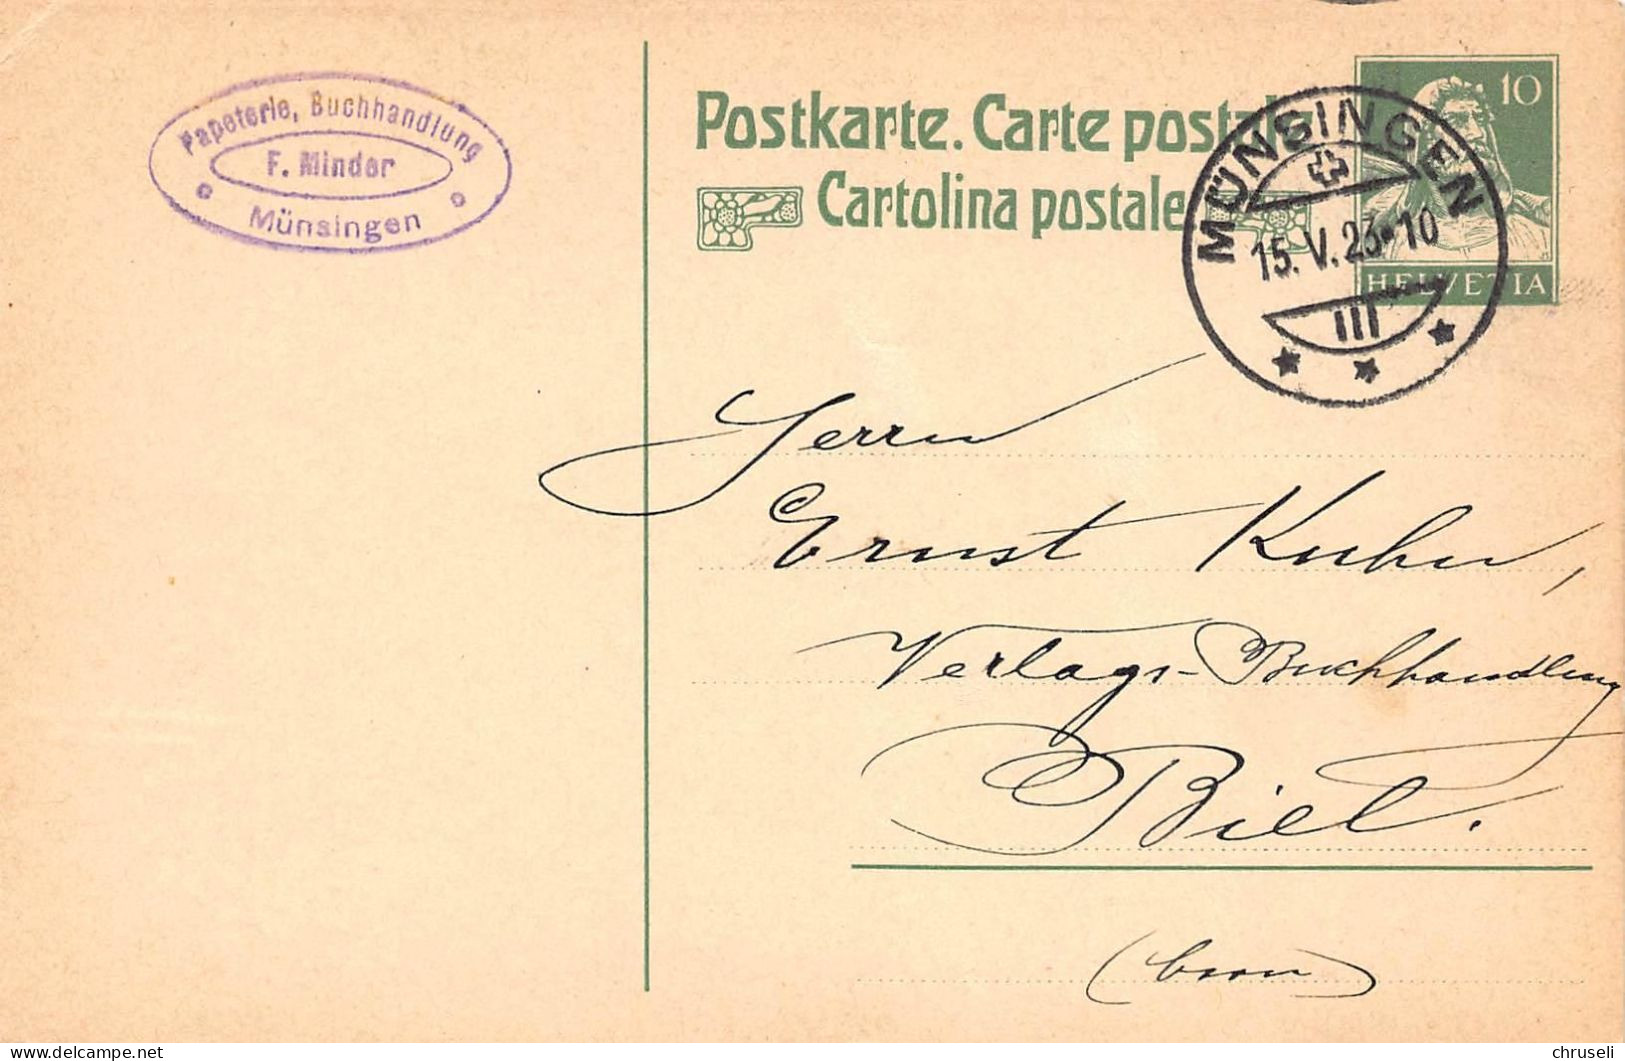 Papeterie, Buchhandlung
F. Minder
Münsingen
Postkarte. Carte postale
Cartolina postale
10
HELVETIA
MÜNSINGEN
15. V. 23-10
III
Herrn
Ernst Kuhn,
Verlags-Buchhandlung
Biel.
(Bern)
delcampe.net
chruseli